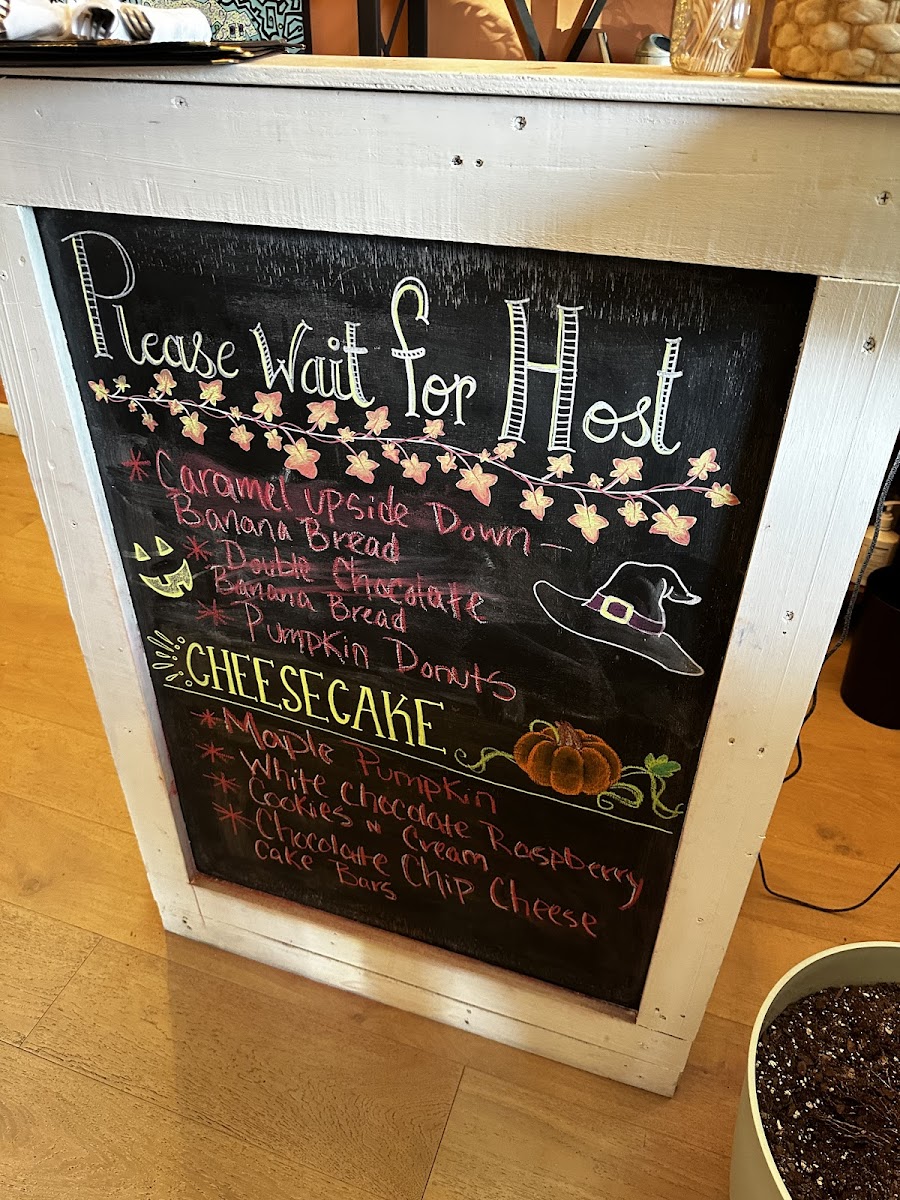 Please Wait for Host
* Caramel Upside Down -
Banana Bread
* Double Chocolate
Banana Bread
* Pumpkin Donuts
CHEESECAKE
* Maple Pumpkin
* White Chocolate Raspberry
* Cookies N Cream
* Chocolate Chip Cheese
Cake Bars